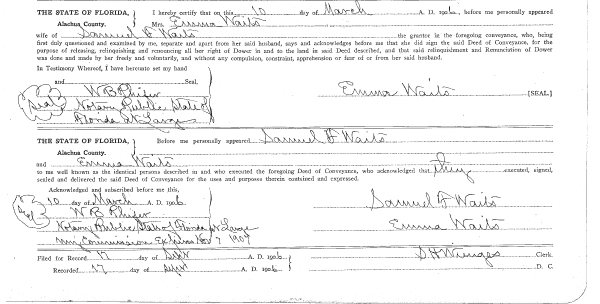 THE STATE OF FLORIDA, I hereby certify that on this 10 day of March A. D. 1906, before me personally appeared
Alachua County. Mrs. Emma Waits
wife of Samuel F Waits the grantor in the foregoing conveyance, who, being
first duly questioned and examined by me, separate and apart from her said husband, says and acknowledges before me that she did sign the said Deed of Conveyance, for the
purpose of releasing, relinquishing and renouncing all her right of Dower in and to the land in said Deed described, and that said relinquishment and Renunciation of Dower
was done and made by her freely and voluntarily, and without any compulsion, constraint, apprehension or fear of or from her said husband.
In Testimony Whereof, I have hereunto set my hand
and Seal,
W B Phifer Emma Waits [SEAL]
Seal Notary Public State of
Florida at Large
THE STATE OF FLORIDA, Before me personally appeared Samuel F Waits
Alachua County.
and Emma Waits
to me well known as the identical persons described in and who executed the foregoing Deed of Conveyance, who acknowledged that they executed, signed,
sealed and delivered the said Deed of Conveyance for the uses and purposes therein contained and expressed.
Acknowledged and subscribed before me this,
10 day of March A. D. 1906 Samuel F Waits
Seal W B Phifer
Notary Public State of Florida at Large Emma Waits
My Commission Expires Nov 7 1907
Filed for Record 17 day of Sept A. D. 1906 S H Wienges Clerk.
Recorded 17 day of Sept A. D. 1906. D. C.